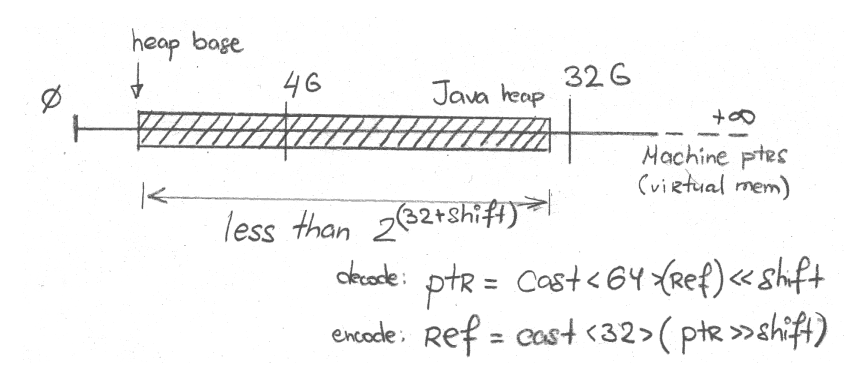 heap base
Ø 4G Java heap 32G
+∞
Machine ptrs
(virtual mem)
less than 2^(32+shift)
decode: ptr = cast<64>(Ref) << shift
encode: Ref = cast<32>(ptr >> shift)